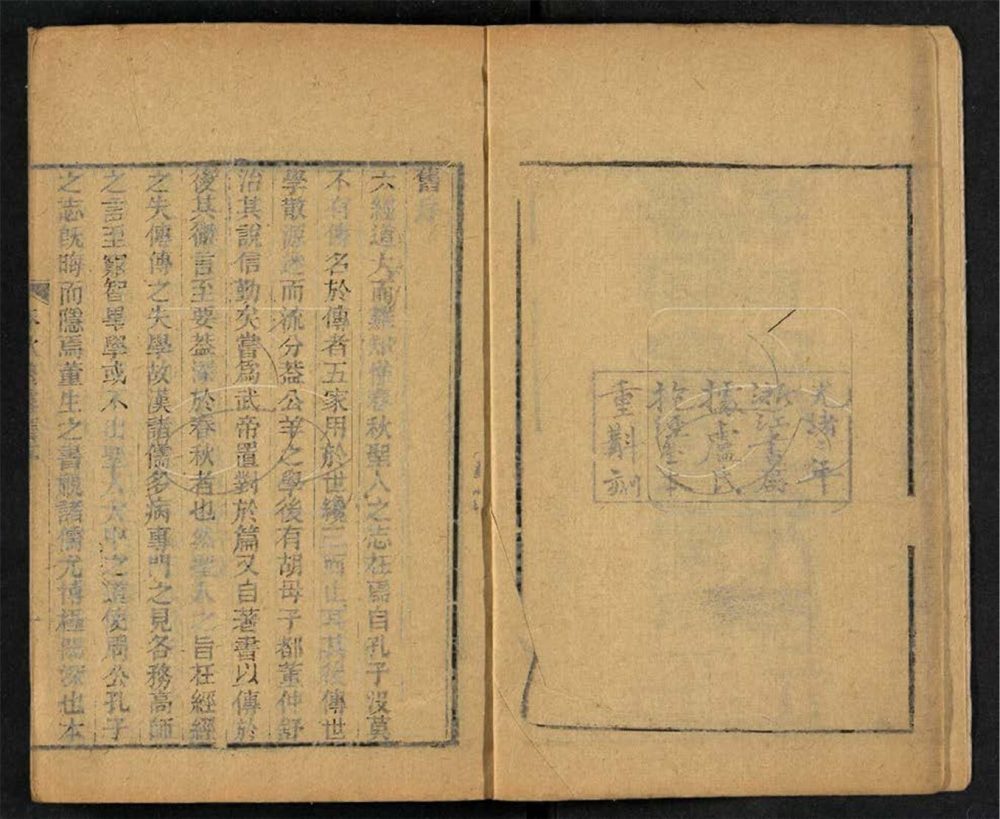 光緒年
浙江書局
據盧氏
抱經堂本
重斠刻
舊序
六經道大而難知惟春秋聖人之志在焉自孔子沒莫
不有傳名於傳者五家用於世纔三而止耳其後傳世
學散源迷而流分葢公羊之學後有胡母子都董仲舒
治其說信勤矣嘗爲武帝置對於篇又自著書以傳於
後其微言至要葢深於春秋者也然聖人之旨在經經
之失傳傳之失學故漢諸儒多病專門之見各務高師
之言至窮智畢學或不出聖人大中之道使周公孔子
之志旣晦而隱焉董生之書視諸儒尤博極閎深也本